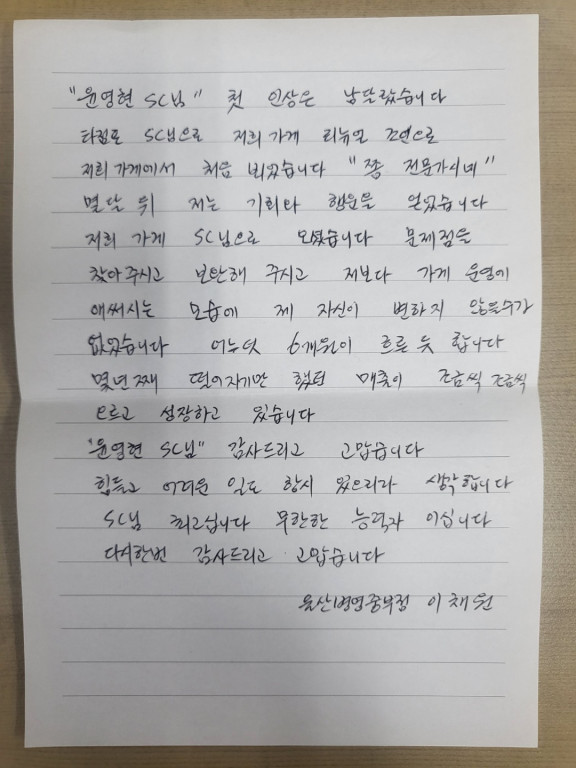 "윤영현 SC님" 첫 인상은 남달랐습니다
타점포 SC님으로 저희 가게 리뉴얼 지원으로
저희 가게에서 처음 뵈었습니다 "쫌 전문가시네"
몇달 뒤 저는 기회와 행운을 얻었습니다
저희 가게 SC님으로 오셨습니다 문제점을
찾아주시고 보완해 주시고 저보다 가게 운영에
애써시는 모습에 제 자신이 변하지 않을수가
없었습니다 어느덧 6개월이 흐른 듯 합니다
몇년째 떨어지기만 했던 매출이 조금씩 조금씩
오르고 성장하고 있습니다
"윤영현 SC님" 감사드리고 고맙습니다
힘들고 어려운 일도 항시 있으리라 생각합니다
SC님 최고십니다 무한한 능력자 이십니다
다시한번 감사드리고 고맙습니다
울산병영중부점 이채원